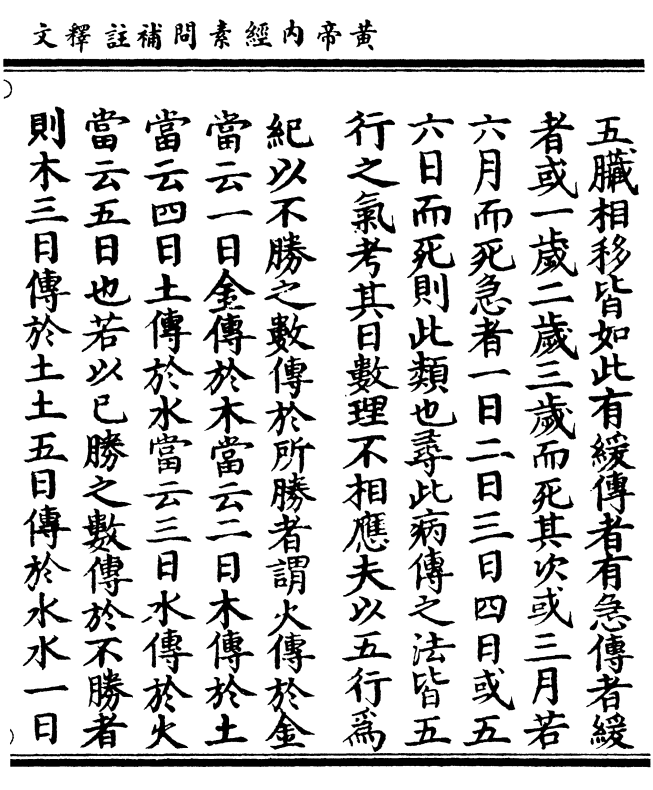 黃帝內經素問補註釋文
五臟相移皆如此有緩傳者有急傳者緩
者或一歲二歲三歲而死其次或三月若
六月而死急者一日二日三日四日或五
六日而死則此類也尋此病傳之法皆五
行之氣考其日數理不相應夫以五行爲
紀以不勝之數傳於所勝者謂火傳於金
當云一日金傳於木當云二日木傳於土
當云四日土傳於水當云三日水傳於火
當云五日也若以已勝之數傳於不勝者
則木三日傳於土土五日傳於水水一日